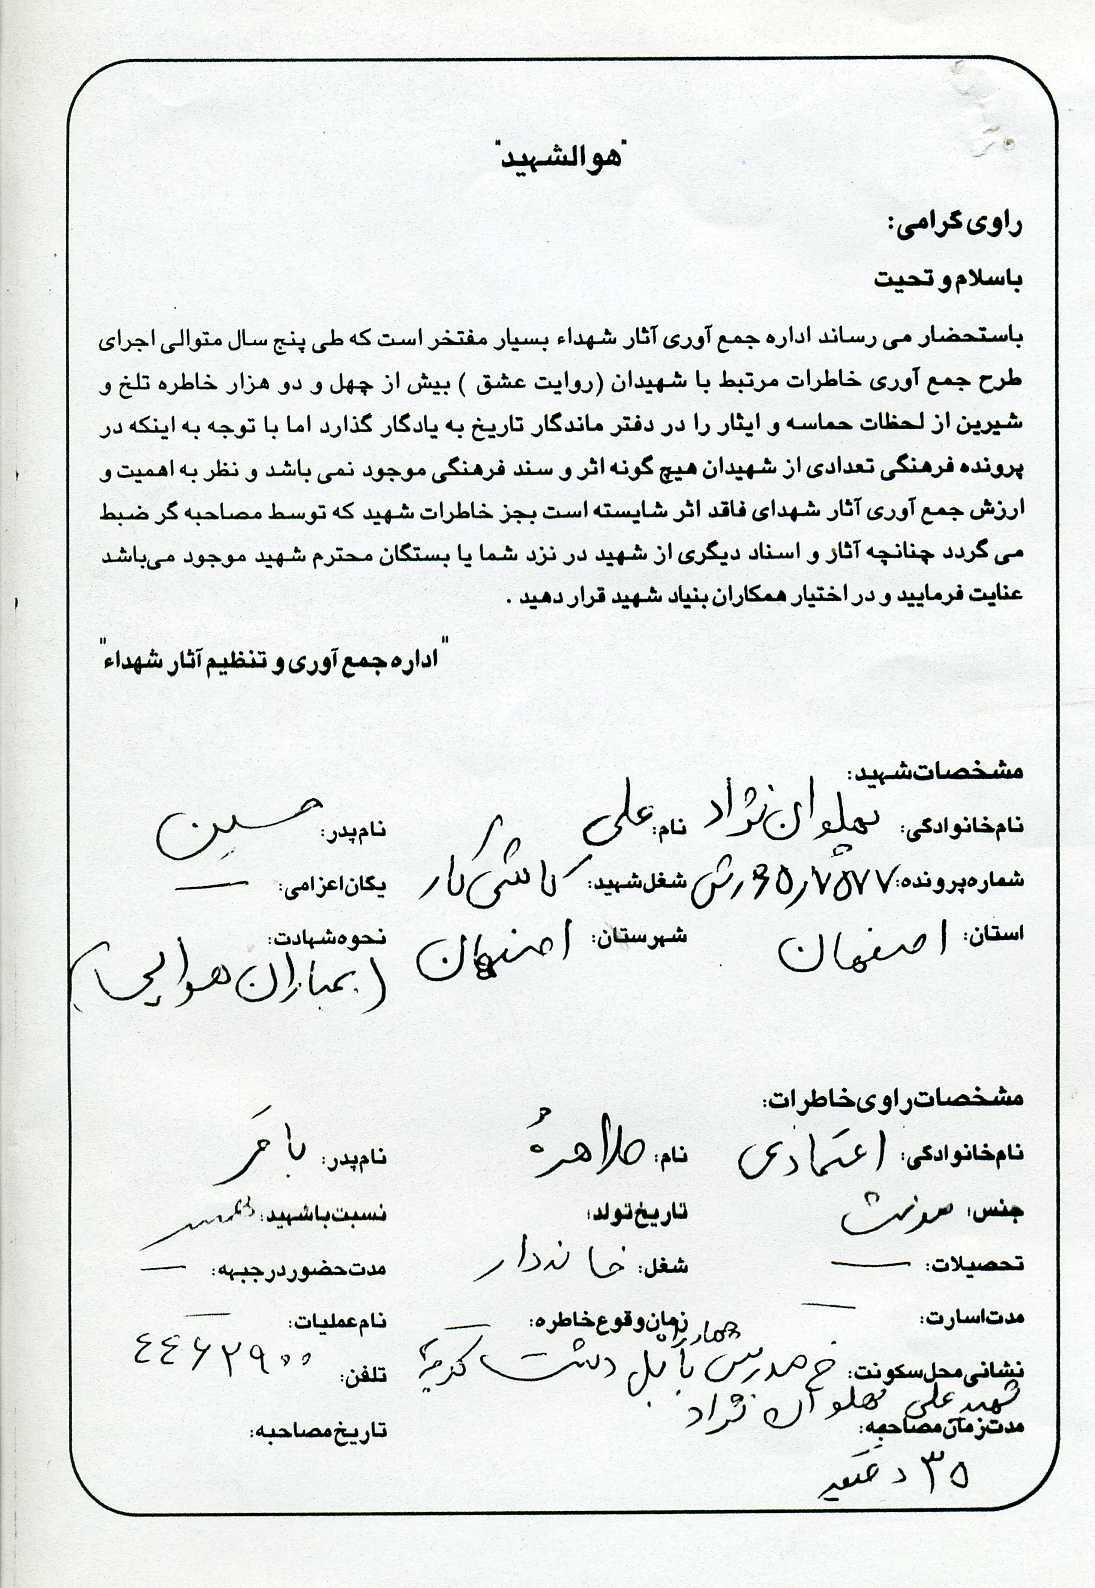 "هوالشهید"
راوی گرامی:
باسلام و تحیت
باستحضار می رساند اداره جمع آوری آثار شهداء بسیار مفتخر است که طی پنج سال متوالی اجرای
طرح جمع آوری خاطرات مرتبط با شهیدان (روایت عشق ) بیش از چهل و دو هزار خاطره تلخ و
شیرین از لحظات حماسه و ایثار را در دفتر ماندگار تاریخ به یادگار گذارد اما با توجه به اینکه در
پرونده فرهنگی تعدادی از شهیدان هیچ گونه اثر و سند فرهنگی موجود نمی باشد و نظر به اهمیت و
ارزش جمع آوری آثار شهدای فاقد اثر شایسته است بجز خاطرات شهید که توسط مصاحبه گر ضبط
می گردد چنانچه آثار و اسناد دیگری از شهید در نزد شما یا بستگان محترم شهید موجود می‌باشد
عنایت فرمایید و در اختیار همکاران بنیاد شهید قرار دهید .
"اداره جمع آوری و تنظیم آثار شهداء"
مشخصات شهید:
نام خانوادگی: پهلوان نژاد نام: علی نام پدر: حسین
شماره پرونده: شغل شهید: کاشی کار یگان اعزامی: —
استان: اصفهان شهرستان: اصفهان نحوه شهادت:
(بمباران هوایی)
مشخصات راوی خاطرات:
نام خانوادگی: اعتمادی نام: طاهره نام پدر: باقر
جنس: مونث تاریخ تولد: نسبت با شهید: همسر
تحصیلات: — شغل: خانه دار مدت حضور در جبهه: —
مدت اسارت: — زمان و قوع خاطره: — نام عملیات: —
نشانی محل سکونت: خ مدرس دشت تلفن: ٤٤٦٢٩٠٠
شهید علی پهلوان نژاد
مدت زمان مصاحبه: تاریخ مصاحبه:
۳۵ دقیقه